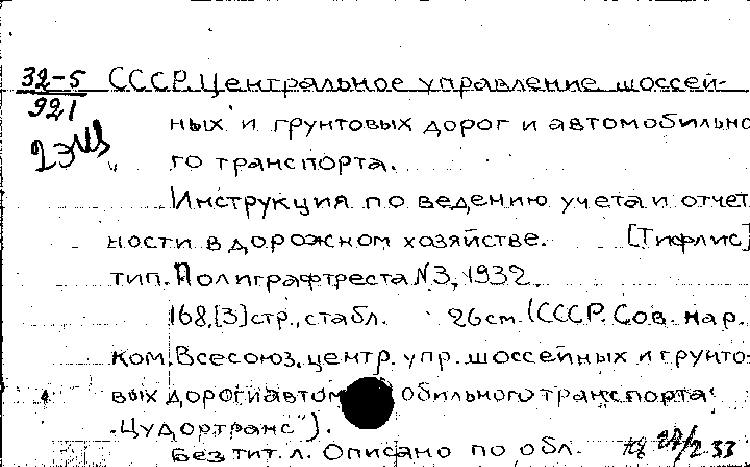 32-5 СССР. Центральное управление шоссей-
921
ных и грунтовых дорог и автомобильно
го транспорта.
Инструкция по ведению учета и отчет
ности в дорожном хозяйстве. [Тифлис]
тип. Полиграфтреста N3, 1932.
168,[3]стр., с табл. 26 см. (СССР. Сов. нар.
ком. Всесоюз. центр. упр. шоссейных и грунто-
вых дорог и автомобильного транспорта
"Цудортранс").
Без тит. л. Описано по обл.